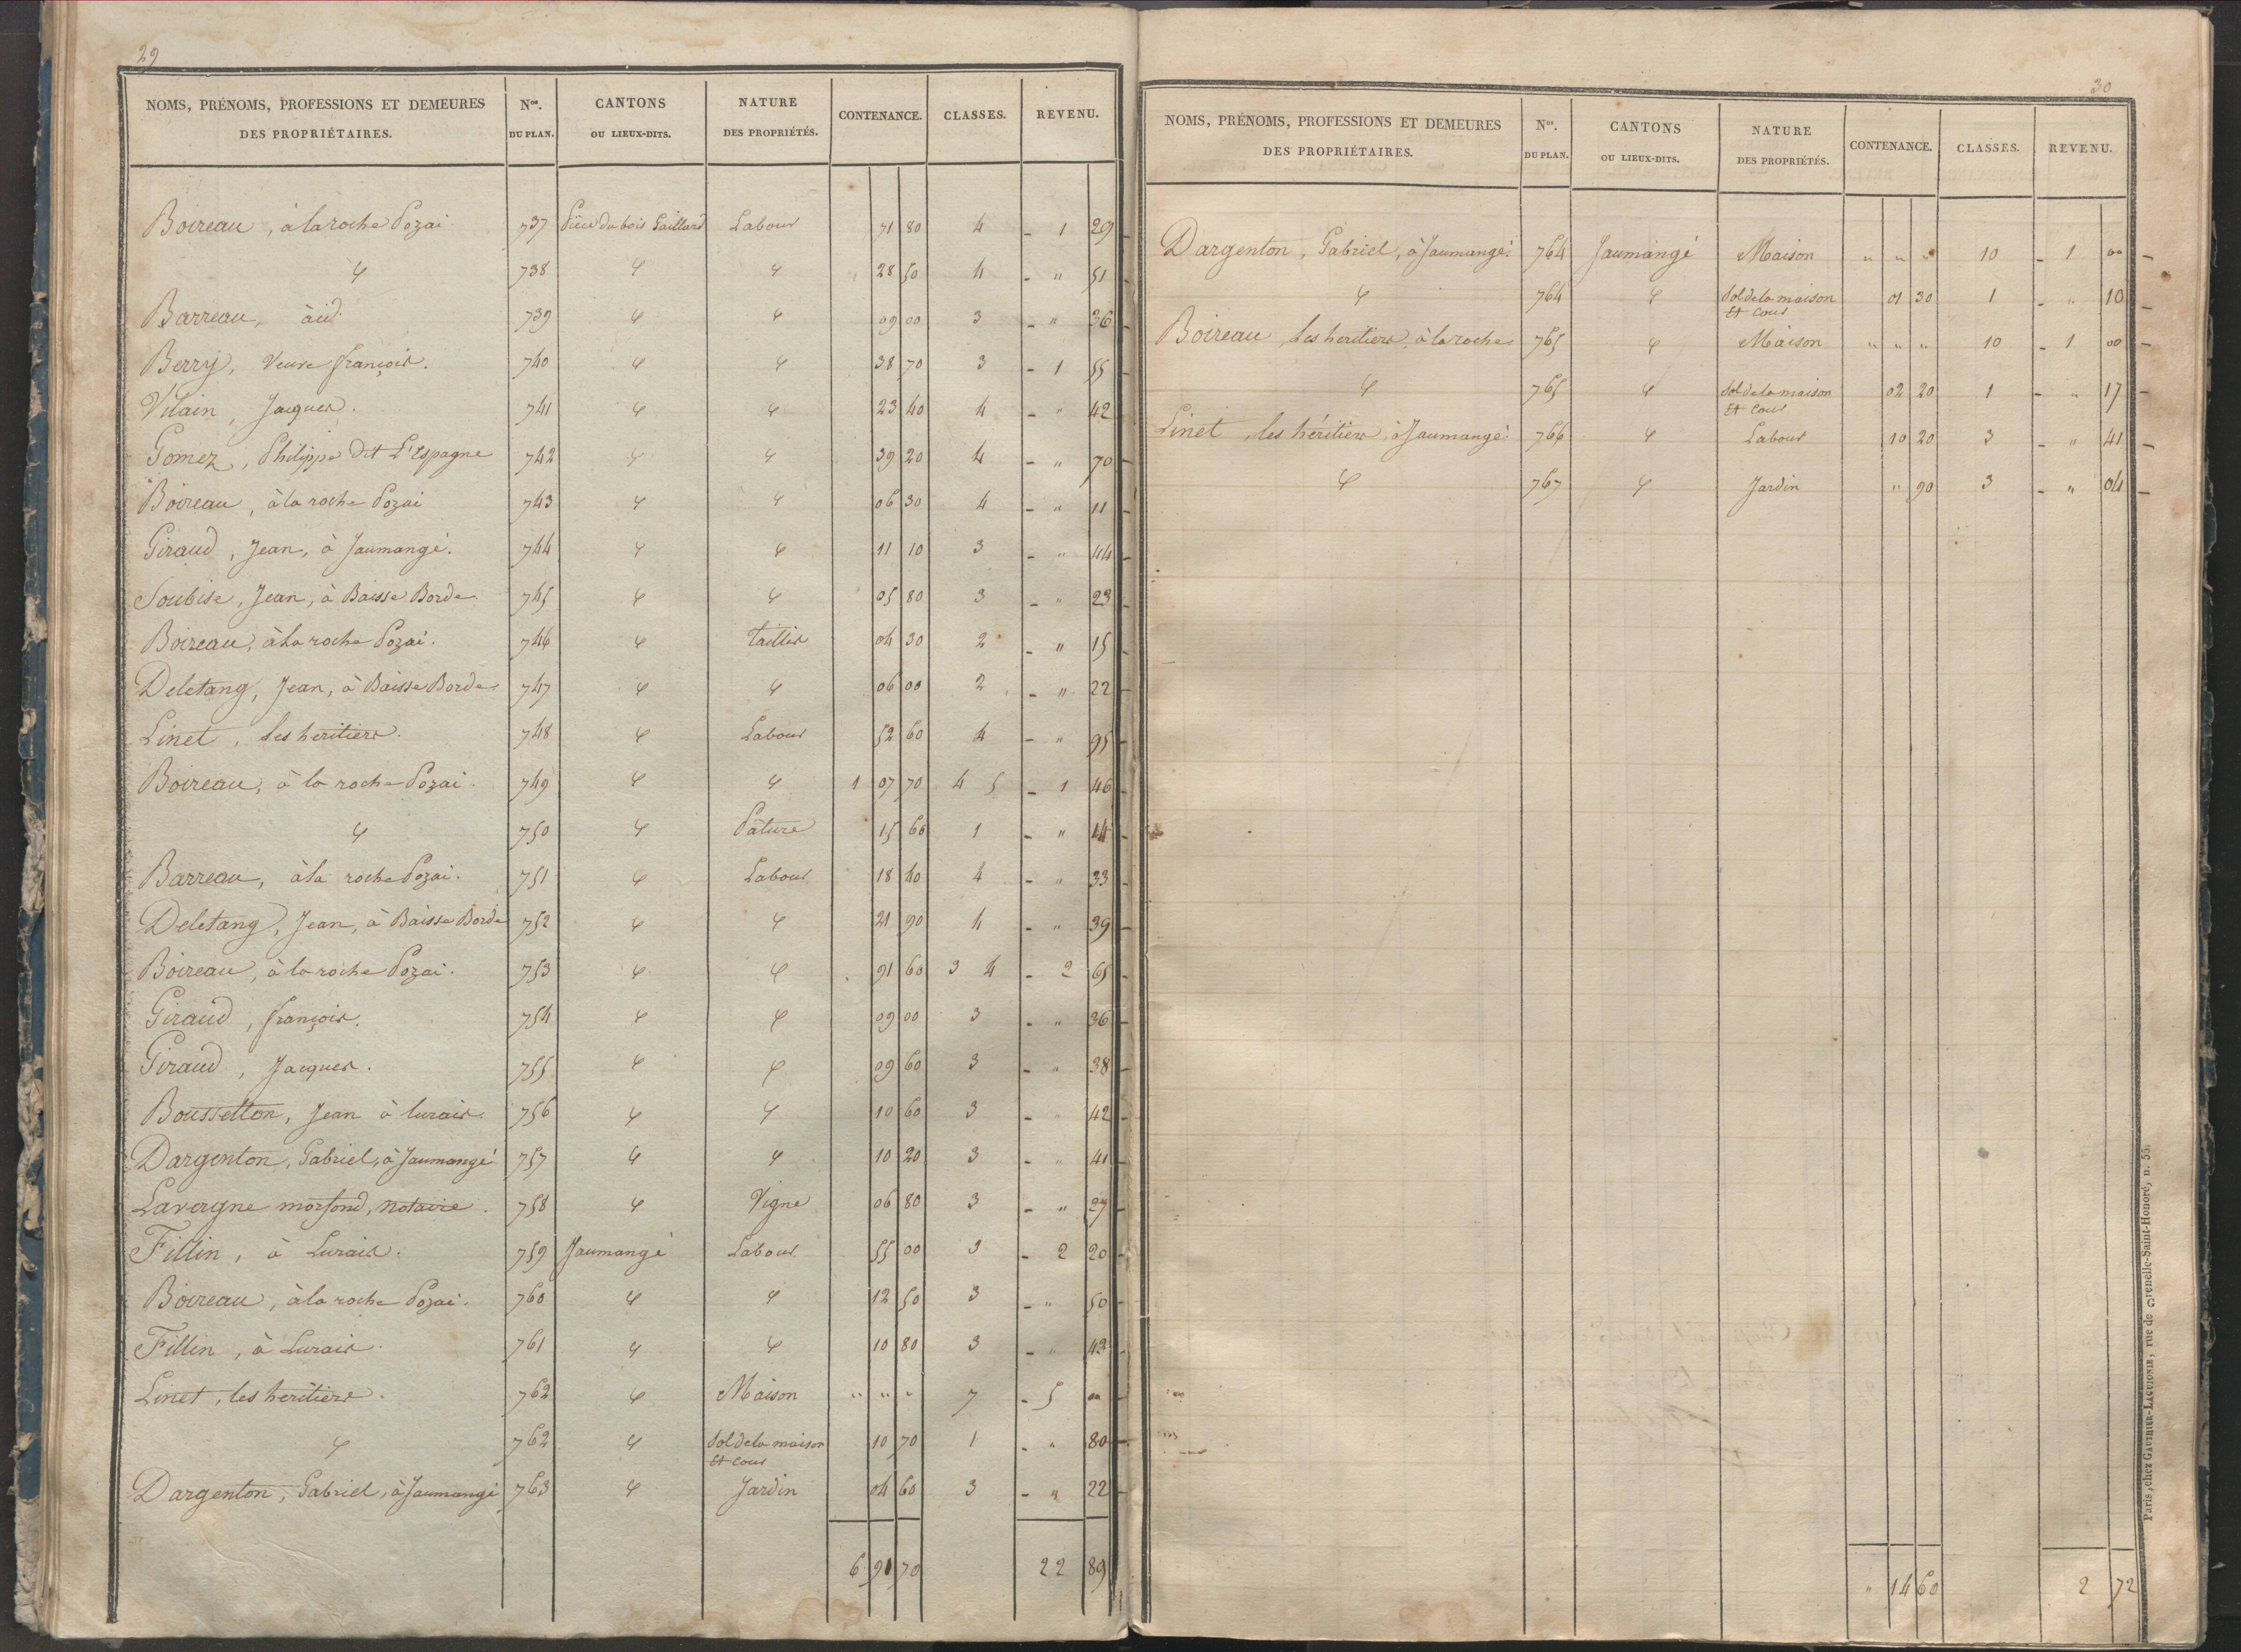 29
NOMS, PRÉNOMS, PROFESSIONS ET DEMEURES DES PROPRIÉTAIRES. Nos. DU PLAN. CANTONS OU LIEUX-DITS. NATURE DES PROPRIÉTÉS. CONTENANCE. CLASSES. REVENU.
Boireau, à la roche Pozai 737 Pièce du bois Gaillard Labour 71 80 4 - 1 29
〃 738 〃 〃 " 28 50 4 - " 51
Barreau, à id. 739 〃 〃 09 00 3 - " 36
Berry, Veuve françois. 740 〃 〃 38 70 3 - 1 55
Vilain, Jacques. 741 〃 〃 23 40 4 - " 42
Gomez, Philippe dit L'Espagne 742 〃 〃 39 20 4 - " 70
Boireau, à la roche Pozai 743 〃 〃 06 30 4 - " 11
Giraud, Jean, à Jaumangé. 744 〃 〃 11 10 3 - " 44
Soubise, Jean, à Baisse Borde 745 〃 〃 05 80 3 - " 23
Boireau, à la roche Pozai. 746 〃 Taillis 04 30 2 - " 15
Deletang, Jean, à Baisse Borde 747 〃 〃 06 00 2 - " 22
Linet, les heritiers. 748 〃 Labour 52 60 4 - " 95
Boireau, à la roche Pozai. 749 〃 〃 1 07 70 4 5 - 1 46
〃 750 〃 Pâture 15 60 1 - " 14
Barreau, à la roche Pozai. 751 〃 Labour 18 40 4 - " 33
Deletang, Jean, à Baisse Borde 752 〃 〃 21 90 4 - " 39
Boireau, à la roche Pozai. 753 〃 〃 91 60 3 4 - 2 65
Giraud, françois. 754 〃 〃 09 00 3 - " 36
Giraud, Jacques. 755 〃 〃 09 60 3 - " 38
Bousselton, Jean à lurais. 756 〃 〃 10 60 3 - " 42
Dargenton, Gabriel, à Jaumangé 757 〃 〃 10 20 3 - " 41
Lavergne morfond, notaire. 758 〃 Vigne 06 80 3 - " 27
Fillin, à Lurais. 759 Jaumangé Labour 55 00 3 - 2 20
Boireau, à la roche Pozai. 760 〃 〃 12 50 3 - " 50
Fillin, à Lurais. 761 〃 〃 10 80 3 - " 43
Linet, les heritiers. 762 〃 Maison " " " 7 - 5 "
〃 762 〃 Sol de la maison 10 70 1 - " 80
Et cour
Dargenton, Gabriel, à Jaumangé 763 〃 Jardin 04 60 3 - " 22
6 91 70 22 89
30
NOMS, PRÉNOMS, PROFESSIONS ET DEMEURES DES PROPRIÉTAIRES. Nos. DU PLAN. CANTONS OU LIEUX-DITS. NATURE DES PROPRIÉTÉS. CONTENANCE. CLASSES. REVENU.
Dargenton, Gabriel, à Jaumangé. 764 Jaumangé Maison " " " 10 - 1 00
〃 764 〃 Sol de la maison 01 30 1 - " 10
Et cour
Boireau, les heritiers, à la roche 765 〃 Maison " " " 10 - 1 00
〃 765 〃 Sol de la maison 02 20 1 - " 17
Et cour
Linet, les héritiers, à Jaumangé. 766 〃 Labour 10 20 3 - " 41
〃 767 〃 Jardin " 90 3 - " 04
" 14 60 2 72
Paris, chez GAUTHIER-LAGUIONIE, rue de Grenelle-Saint-Honoré, n. 55.